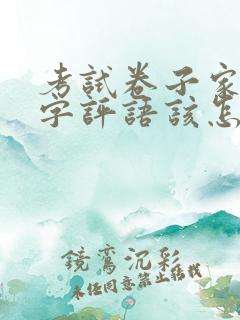 考試卷子家
字評語該怎
鏡鸞沉彩
未經同意禁止轉載